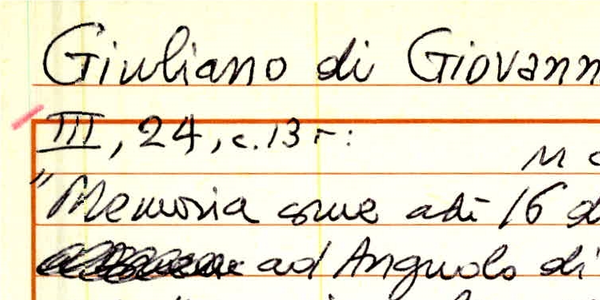 Giuliano di Giovann
III, 24, c. 13 r:
"Memoria come adì 16 d
ad Angnolo di